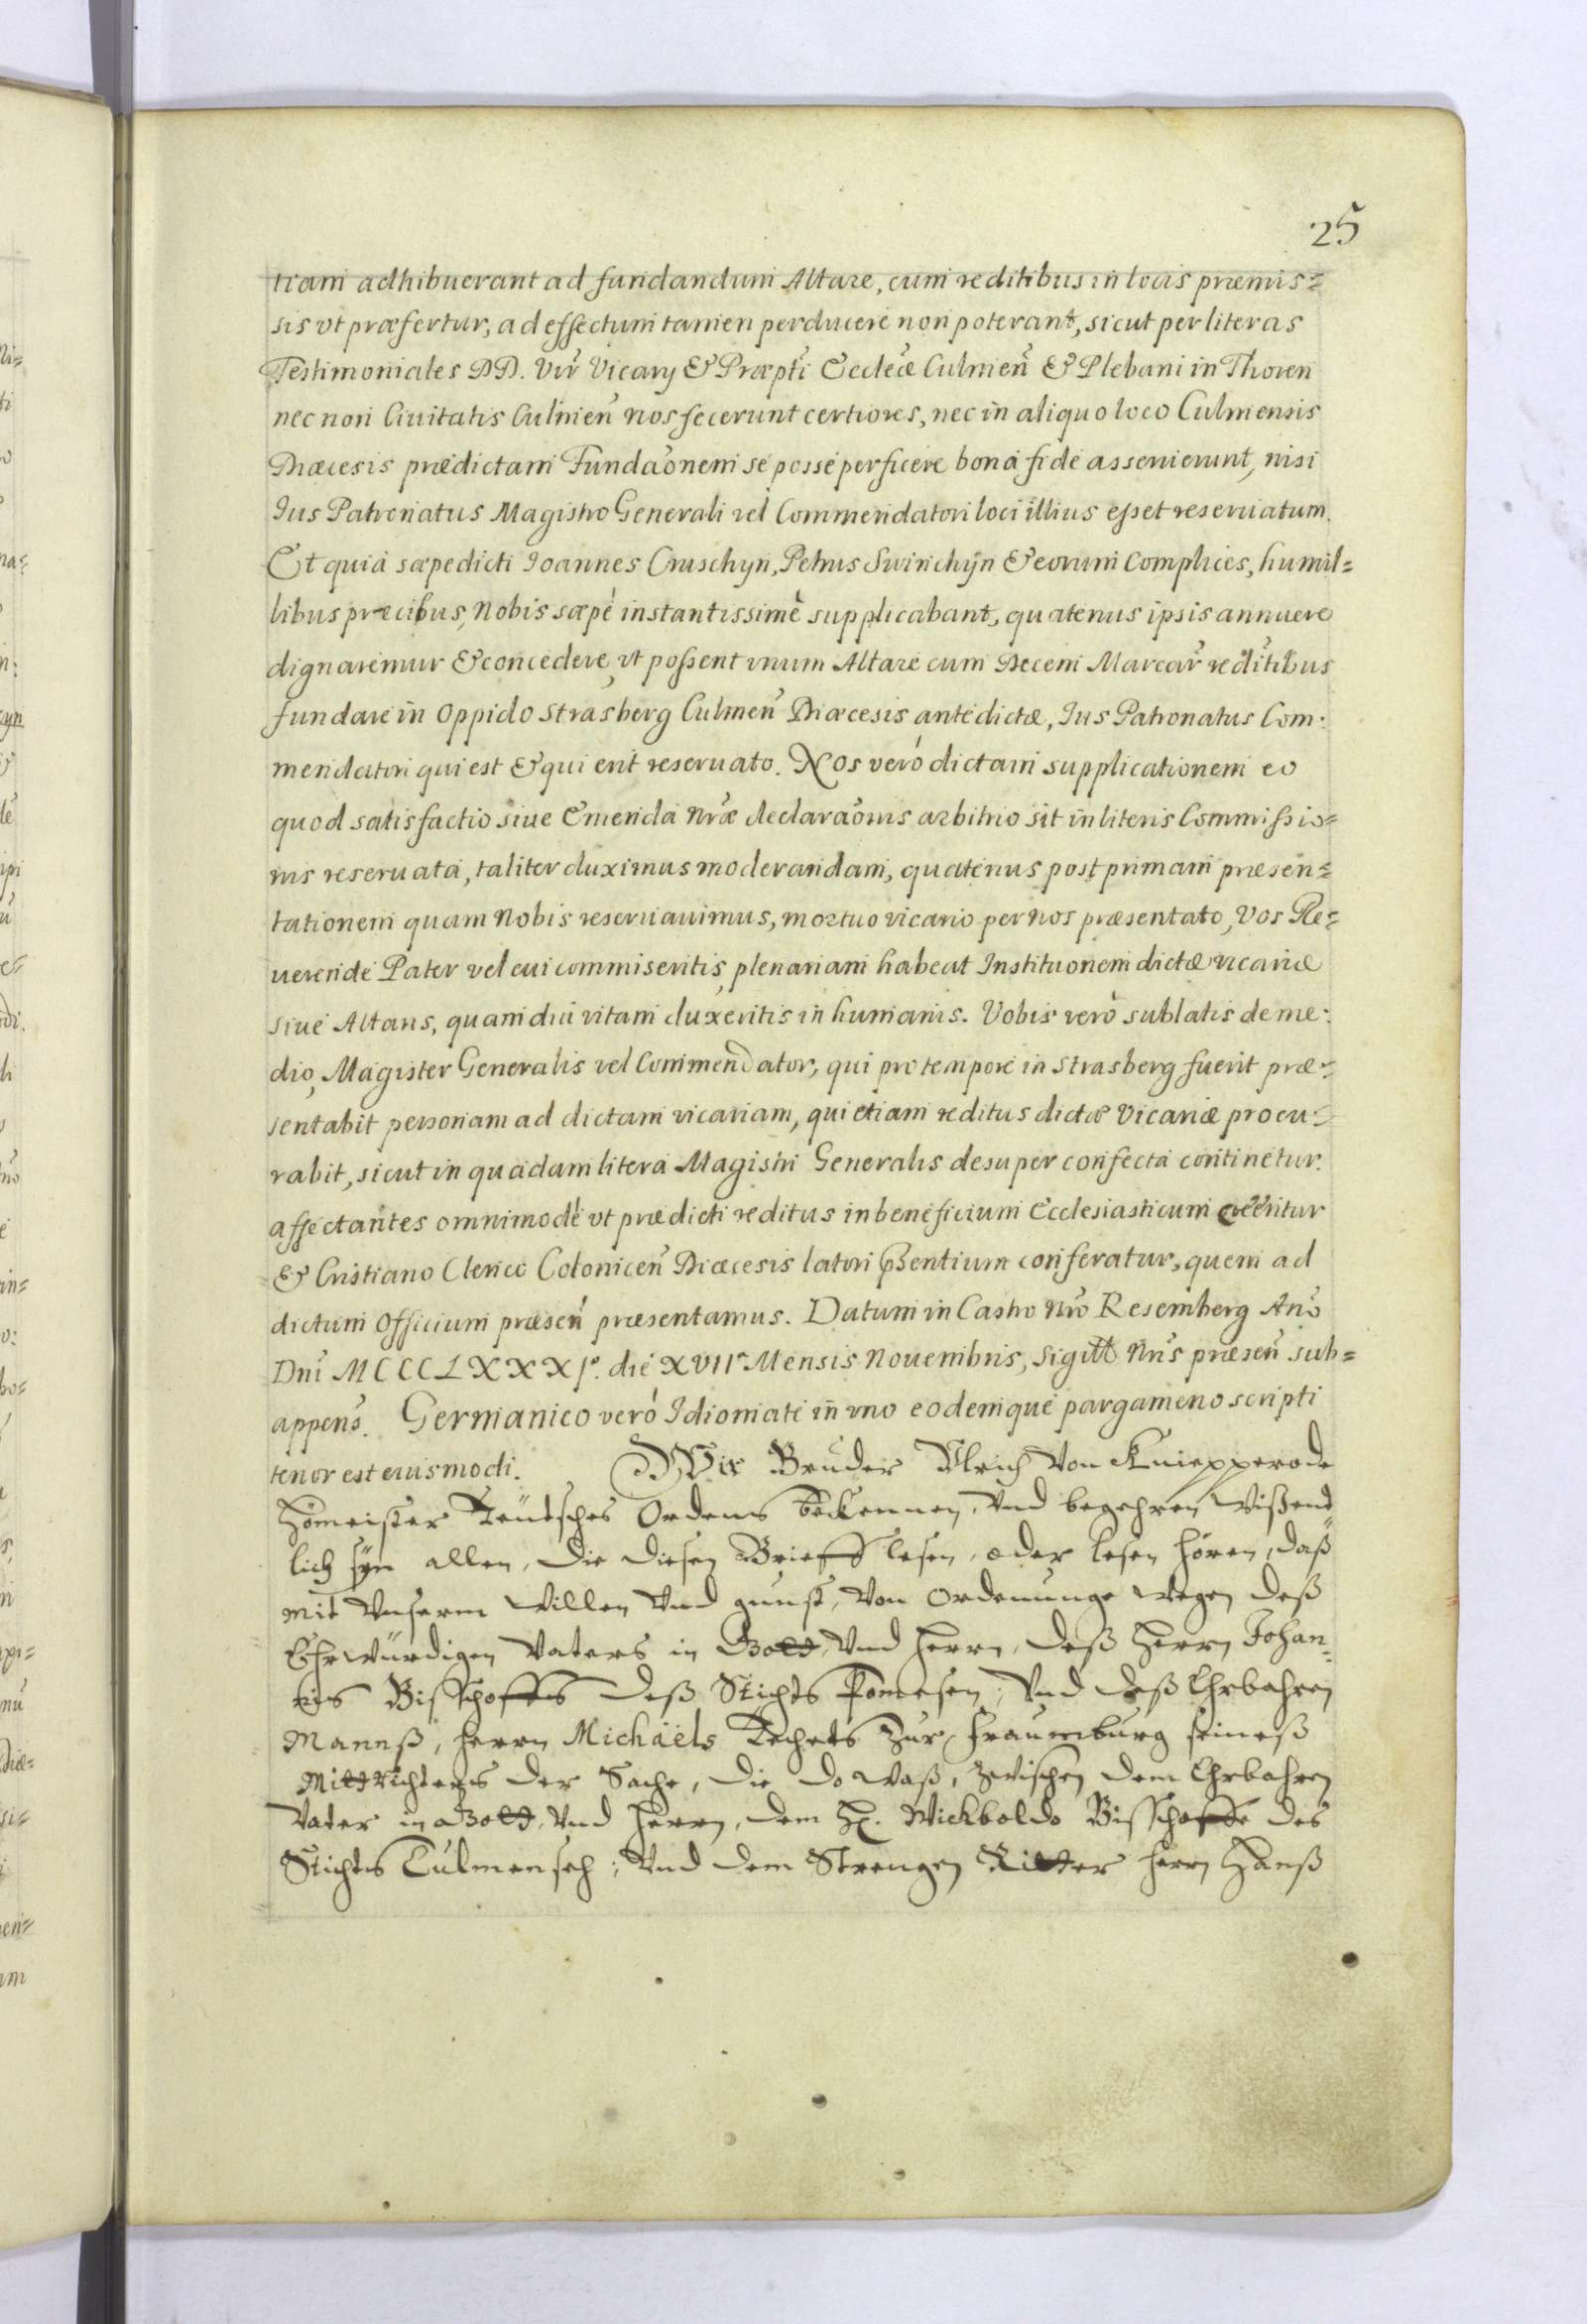 25
tiam adhibuerant ad fundandum Altare, cum reditibus in locis præmis=
sis vt præfertur, ad effectum tamen perducere non poterant, sicut per literas
Testimoniales DD. Viř Vicarij & Præpti Eccleæ Culmeñ & Plebani in Thoren
nec non Ciuitatis Culmeñ nos fecerunt certiores, nec in aliquo loco Culmensis
Diæcesis prædictam Fundaonem se posse perficere bona fide asseruerunt, nisi
Ius Patronatus Magistro Generali vel Commendatori loci illius esset reseruatum.
Et quia sæpedicti Ioannes Cruschyn, Petrus Swinchÿn & eorum Complices, humil=
libus præcibus, Nobis sæpè instantissimè supplicabant, quatenus ipsis annuere
dignaremur & concedere, vt possent vnum Altare cum Decem Marcař reditibus
fundare in Oppido Strasberg Culmeñ Diæcesis antedictæ, Ius Patronatus Com:
mendatori qui est & qui erit reseruato. Nos verò dictam supplicationem eo
quod satisfactio siue Emenda Nræ declaraonis arbitrio sit in literis Commissio=
nis reseruata, taliter duximus moderandam, quatenus post primam præsen=
tationem quam Nobis reseruauimus, mortuo vicario per nos præsentato, Vos Re=
uerende Pater vel cui commiseritis, plenariam habeat Instituonem dictæ vicariæ
siue Altaris, quamdiu vitam duxeritis in humanis. Vobis verò sublatis de me:
dio, Magister Generalis vel Commendator, qui pro tempore in Strasberg fuerit præ=
sentabit personam ad dictam vicariam, qui etiam reditus dictæ Vicariæ procu:
rabit, sicut in quadam litera Magistri Generalis desuper confecta continetur.
affectantes omnimodè vt prædicti reditus in beneficium Ecclesiasticum
& Cristiano Clerico Coloniceñ Diæcesis latori pñsentium conferatur, quem ad
dictum Officium præseñ præsentamus. Datum in Castro Nro Resemberg Año
Dni MCCCLXXXI°. die XVII° Mensis Nouembris, Sigill Nris præseñ sub=
appens. Germanico verò Idiomate in vno eodemque pargameno scripti
tenor est eiusmodi. Wir Bruder Vlrich Von Kniepperode
Homeister Teutsches Ordens bekennen, Vnd begehren Wißend
lich syn allen, die diesen Brieff lesen, oder lesen hören, daß
mit Vnserm Willen Vnd gunst, Von Ordenunge Wegen deß
Ehrwürdigen Vaters in Gott, Vnd Herrn, deß Herrn Johan=
nis Bischoffs deß Stichts Pomesen, Vnd deß Ehrbahren
Mannß, Herrn Michaëls Dechets Zur Fraumburg seineß
Mittrichters der Sache, die do Waß, zwischen dem Ehrbahren
Vater in Gott, Vnd Herrn, dem H. Wickboldo Bisschoffe des
Stichts Culmenseh; Vnd dem Strengen Ritter Herrn Hanß